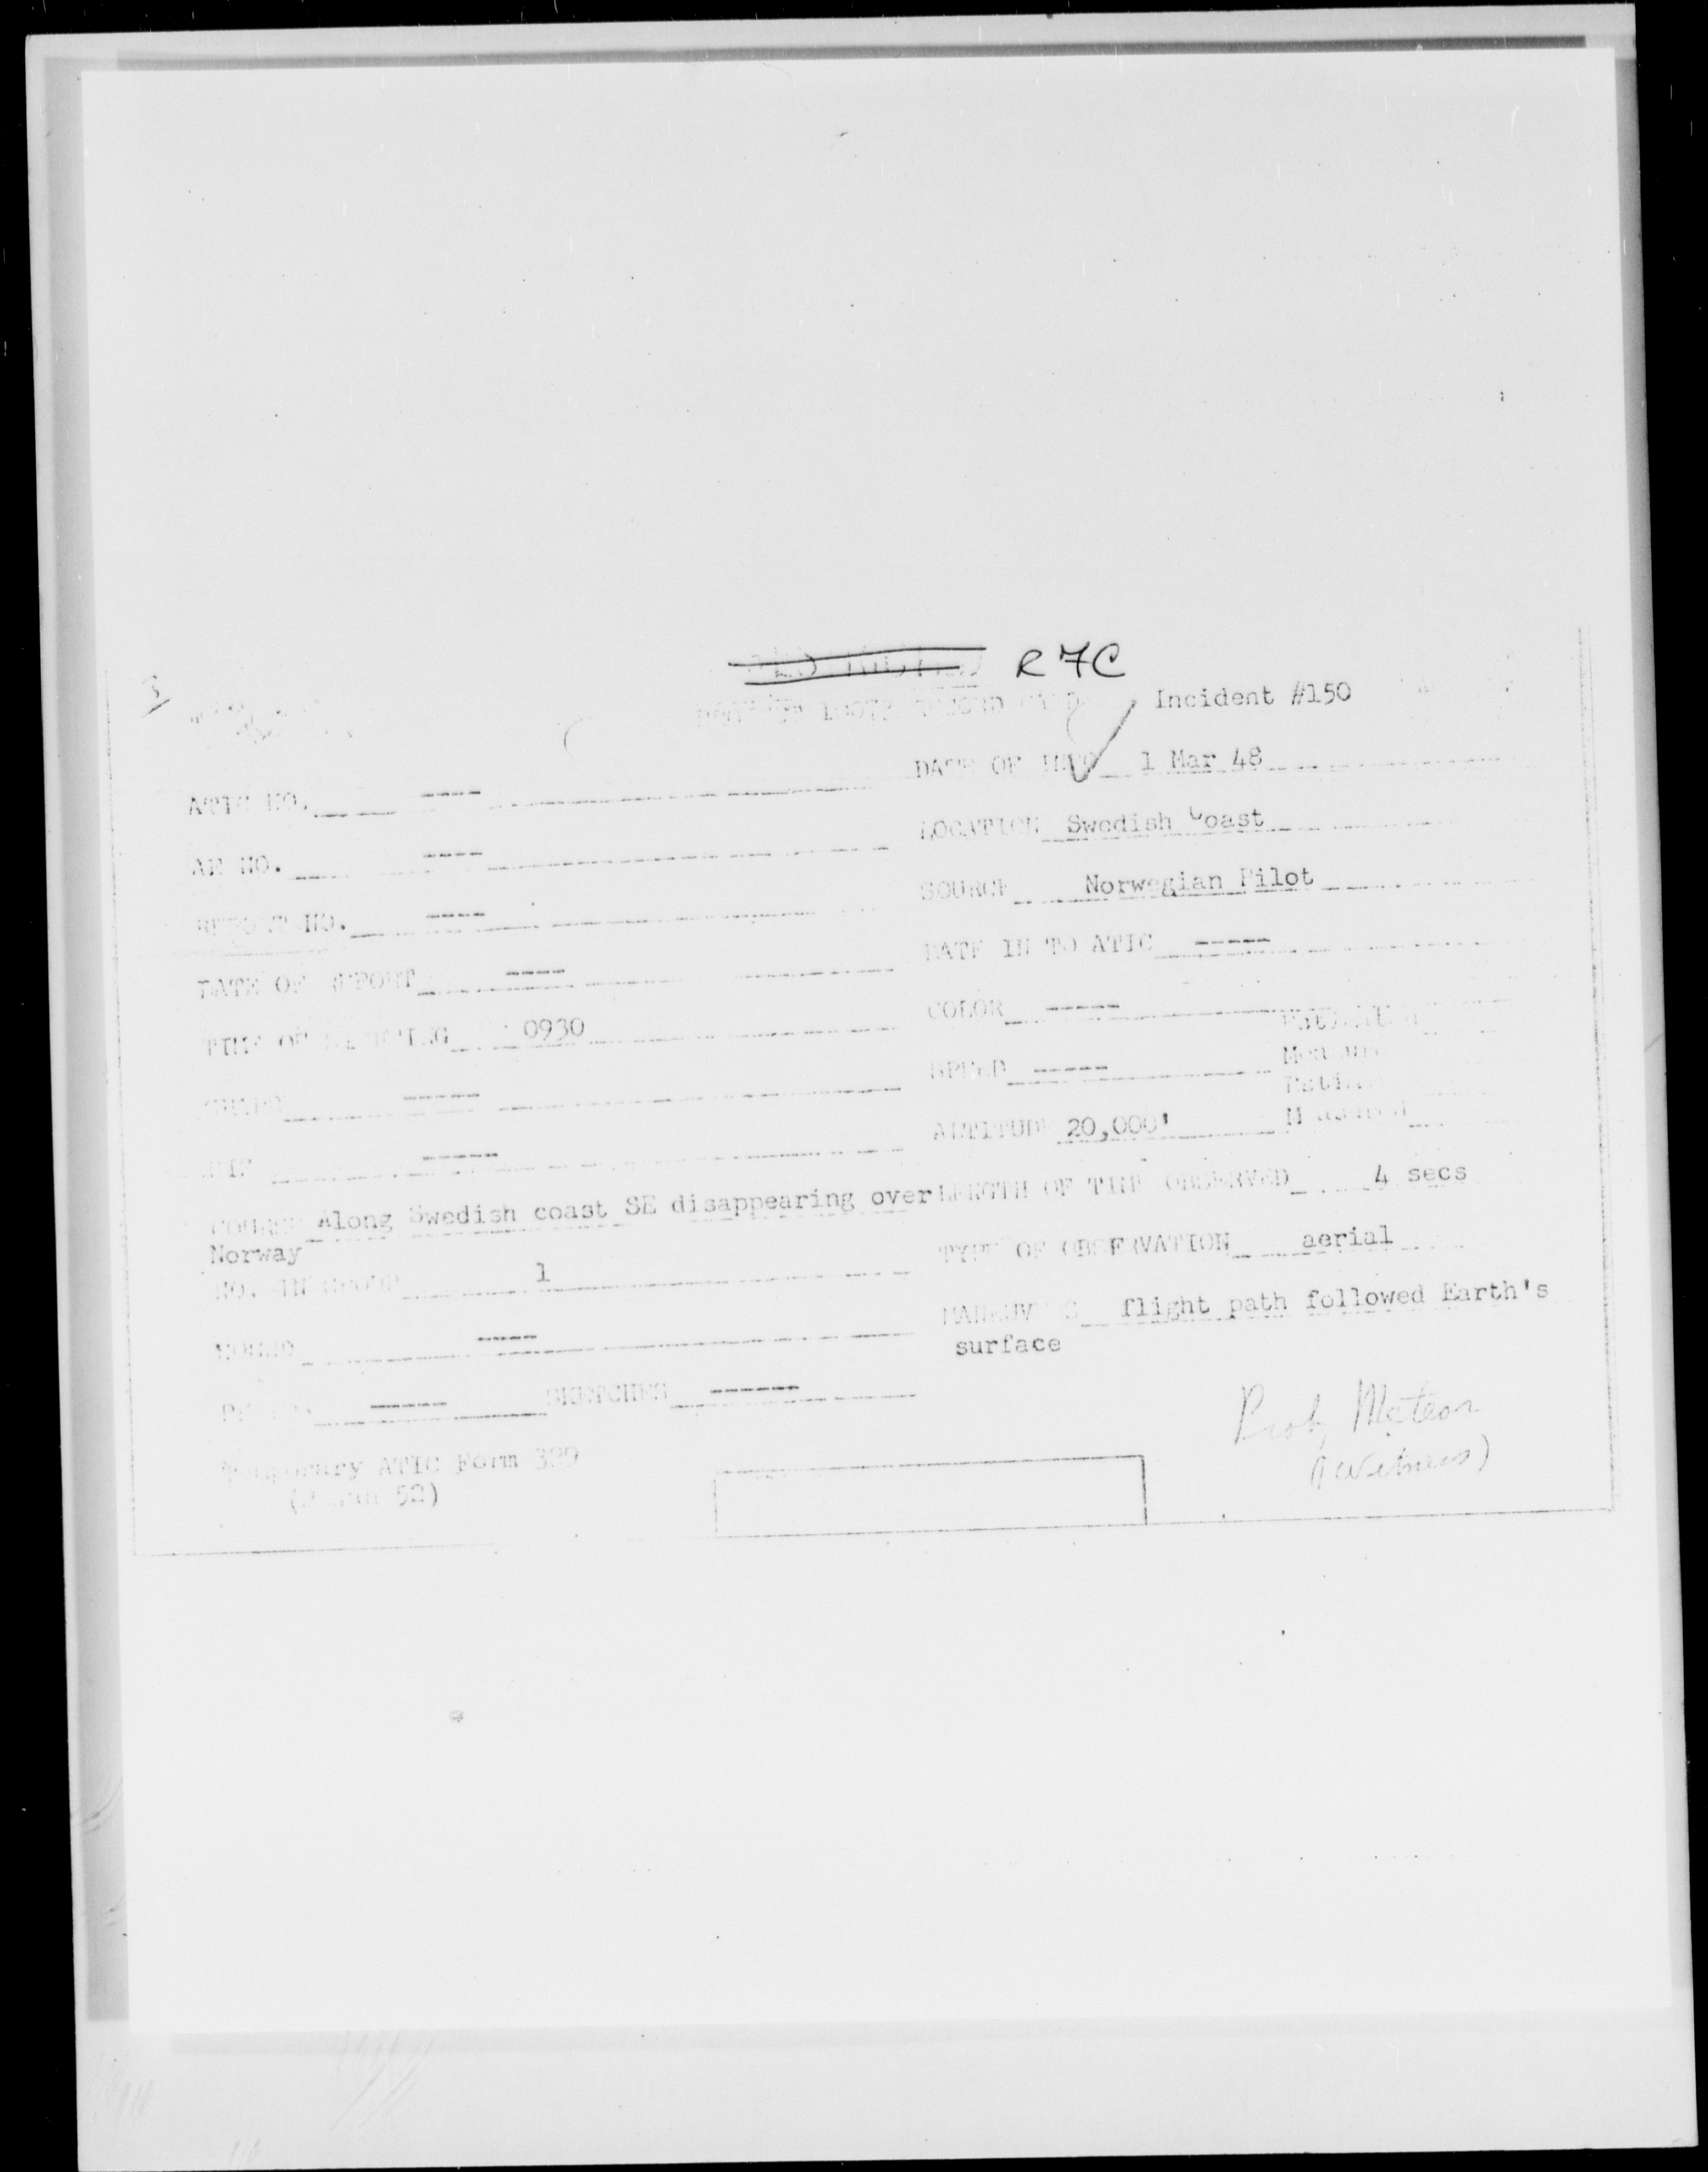 R7C
Incident #150
DATE OF INFO 1 Mar 48
ATIC NO. ----
LOCATION Swedish Coast
AF NO. ----
SOURCE Norwegian Pilot
REPORT NO. ----
DATE IN TO ATIC -----
DATE OF REPORT ----
COLOR -----
TIME OF SIGHTING 0930
SPEED -----
SHAPE -----
ALTITUDE 20,000'
SIZE -----
LENGTH OF TIME OBSERVED 4 secs
COURSE Along Swedish coast SE disappearing over
Norway
TYPE OF OBSERVATION aerial
NO. IN GROUP 1
MANEUVERS flight path followed Earth's
surface
SOUND ----
PHOTOS ----- SKETCHES ------
Prob Meteor
(1 witness)
Temporary ATIC Form 329
52)